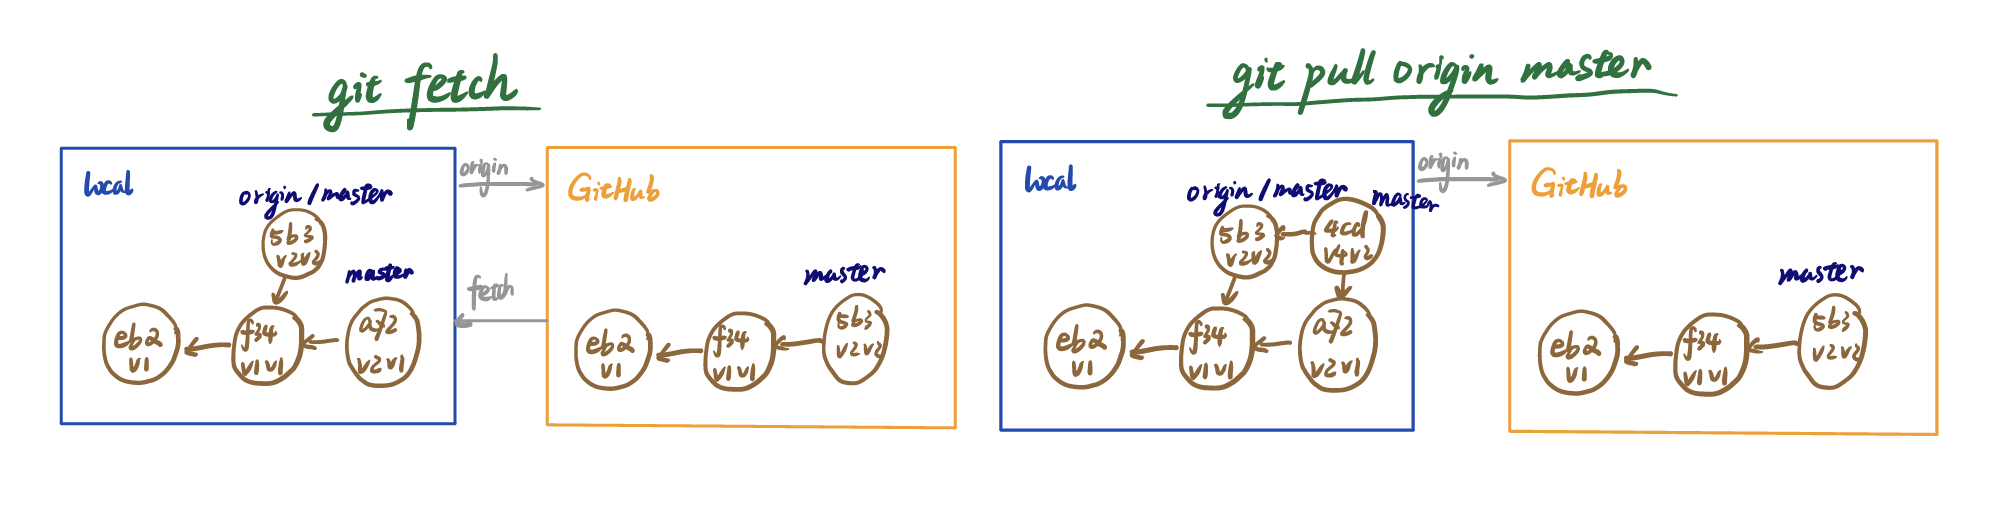 git fetch
local
origin/master
5b3
v2v2
master
eb2
v1
f34
v1v1
a72
v2v1
origin
fetch
GitHub
master
eb2
v1
f34
v1v1
5b3
v2v2
git pull origin master
local
origin/master
master
5b3
v2v2
4cd
v4v2
eb2
v1
f34
v1v1
a72
v2v1
origin
GitHub
master
eb2
v1
f34
v1v1
5b3
v2v2